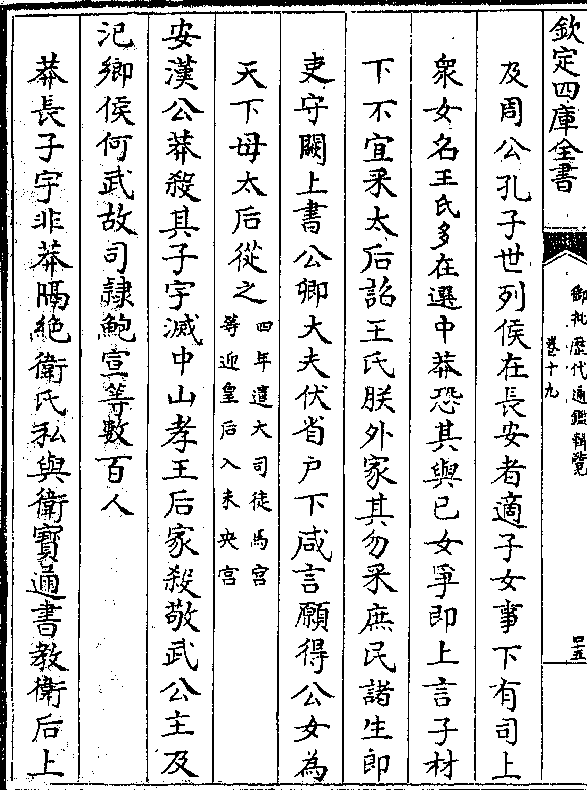 欽定四庫全書
御批歷代通鑑輯覽
卷十九
四五
及周公孔子世列侯在長安者適子女事下有司上
衆女名王氏多在選中莽恐其與已女爭即上言子材
下不宜采太后詔王氏朕外家其勿采庶民諸生郎
吏守闕上書公卿大夫伏省户下咸言願得公女為
天下母太后從之四年遣大司徒馬宫
等迎皇后入未央宫
安漢公莽殺其子宇滅中山孝王后家殺敬武公主及
氾鄉侯何武故司隸鮑宣等數百人
莽長子宇非莽隔絶衛氏私與衛寳通書教衛后上